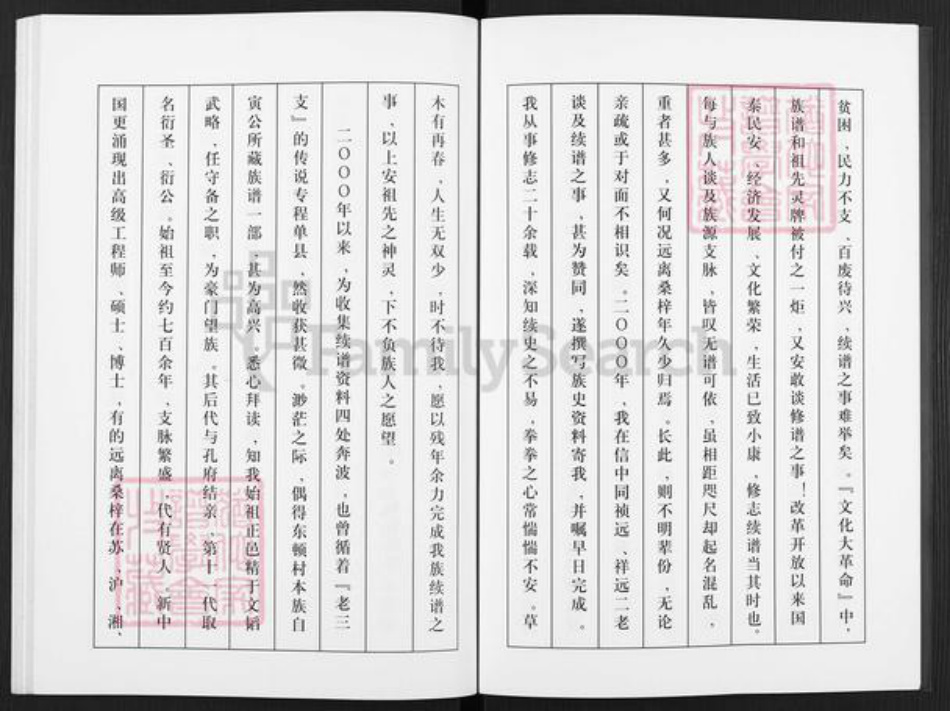 贫困，民力不支，百废待兴，续谱之事难举矣。『文化大革命』中，
族谱和祖先灵牌被付之一炬，又安敢谈修谱之事！改革开放以来国
泰民安、经济发展、文化繁荣，生活已致小康，修志续谱当其时也。
每与族人谈及族源支脉，皆叹无谱可依，虽相距咫尺却起名混乱，
重者甚多，又何况远离桑梓年久少归焉。长此，则不明辈份，无论
亲疏或于对面不相识矣。二〇〇〇年，我在信中同祯远、祥远二老
谈及续谱之事，甚为赞同，遂撰写族史资料寄我，并嘱早日完成。
我从事修志二十余载，深知续史之不易，拳拳之心常惴惴不安。草
木有再春，人生无双少，时不待我，愿以残年余力完成我族续谱之
事，以上安祖先之神灵，下不负族人之愿望。
二〇〇〇年以来，为收集续谱资料四处奔波，也曾循着『老三
支』的传说专程单县，然收获甚微。渺茫之际，偶得东顿村本族自
寅公所藏族谱一部，甚为高兴。悉心拜读，知我始祖正邑精于文韬
武略，任守备之职，为豪门望族。其后代与孔府结亲，第十一代取
名衍圣、衍公。始祖至今约七百余年，支脉繁盛，代有贤人，新中
国更涌现出高级工程师、硕士、博士，有的远离桑梓在苏、沪、湘、
FamilySearch